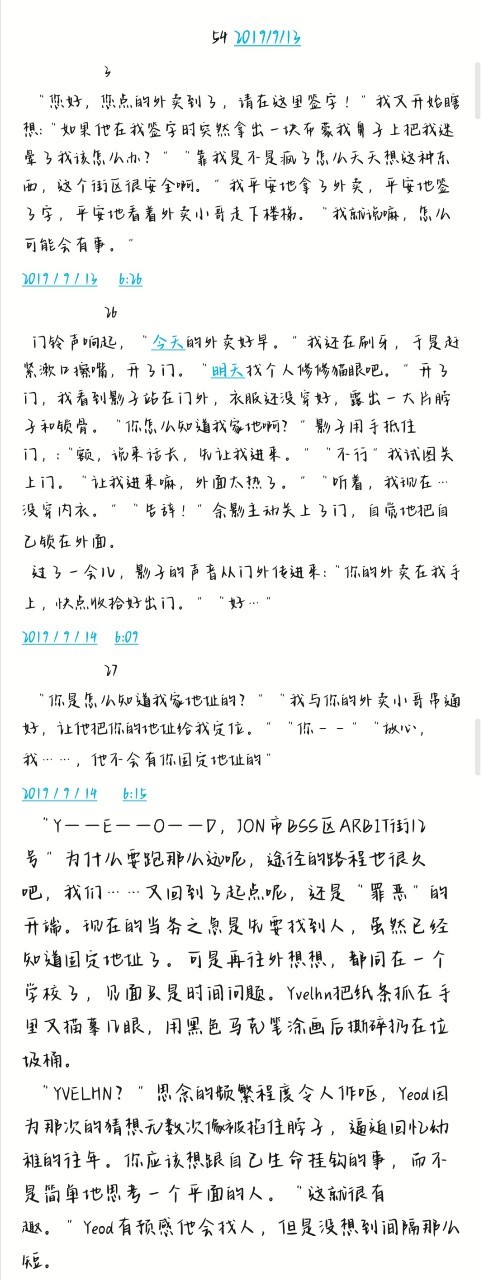 54 2019/9/13
3
“您好，您点的外卖到了，请在这里签字！”我又开始瞎
想：“如果他在我签字时突然拿出一块布蒙我鼻子上把我迷
晕了我该怎么办？”“靠我是不是疯了怎么天天想这种东
西，这个街区很安全啊。”我平安地拿了外卖，平安地签
了字，平安地看着外卖小哥走下楼梯。“我就说嘛，怎么
可能会有事。”
2019/9/13 6:26
26
门铃声响起，“今天的外卖好早。”我还在刷牙，于是赶
紧漱口擦嘴，开了门。“明天找个人修修猫眼吧。”开了
门，我看到影子站在门外，衣服还没穿好，露出一大片脖
子和锁骨。“你怎么知道我家地啊？”影子用手抵住
门，：“额，说来话长，先让我进来。”“不行”我试图关
上门。“让我进来嘛，外面太热了。”“听着，我现在…
没穿内衣。”“告辞！”余影主动关上了门，自觉地把自
己锁在外面。
过了一会儿，影子的声音从门外传进来：“你的外卖在我手
上，快点收拾好出门。”“好…”
2019/9/14 6:09
27
“你是怎么知道我家地址的？”“我与你的外卖小哥串通
好，让他把你的地址给我定位。”“你--”“放心，
我……，他不会有你固定地址的”
2019/9/14 6:15
“Y——E——O——D，JON市BSS区ARBIT街12
号”为什么要跑那么远呢，途径的路程也很久
吧，我们……又回到了起点呢，还是“罪恶”的
开端。现在的当务之急是先要找到人，虽然已经
知道固定地址了。可是再往外想想，都同在一个
学校了，见面只是时间问题。Yvelhn把纸条抓在手
里又描摹几眼，用黑色马克笔涂画后撕碎扔在垃
圾桶。
“YVELHN？”思念的频繁程度令人作呕，Yeod因
为那次的猜想无数次像被掐住脖子，逼迫回忆幼
稚的往年。你应该想跟自己生命挂钩的事，而不
是简单地思考一个平面的人。“这就很有
趣。”Yeod有预感他会找人，但是没想到间隔那么
短。